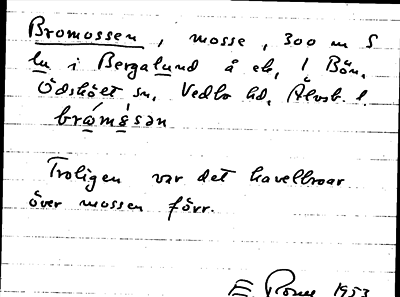 Bromossen, mosse, 300 m S
lu i Bergalund å ek, 1 Bön,
Ödskölt sn, Vedbo hd, Älvsb. l.
bròmósən
Troligen var det kavelbroar
över mossen förr.
1953